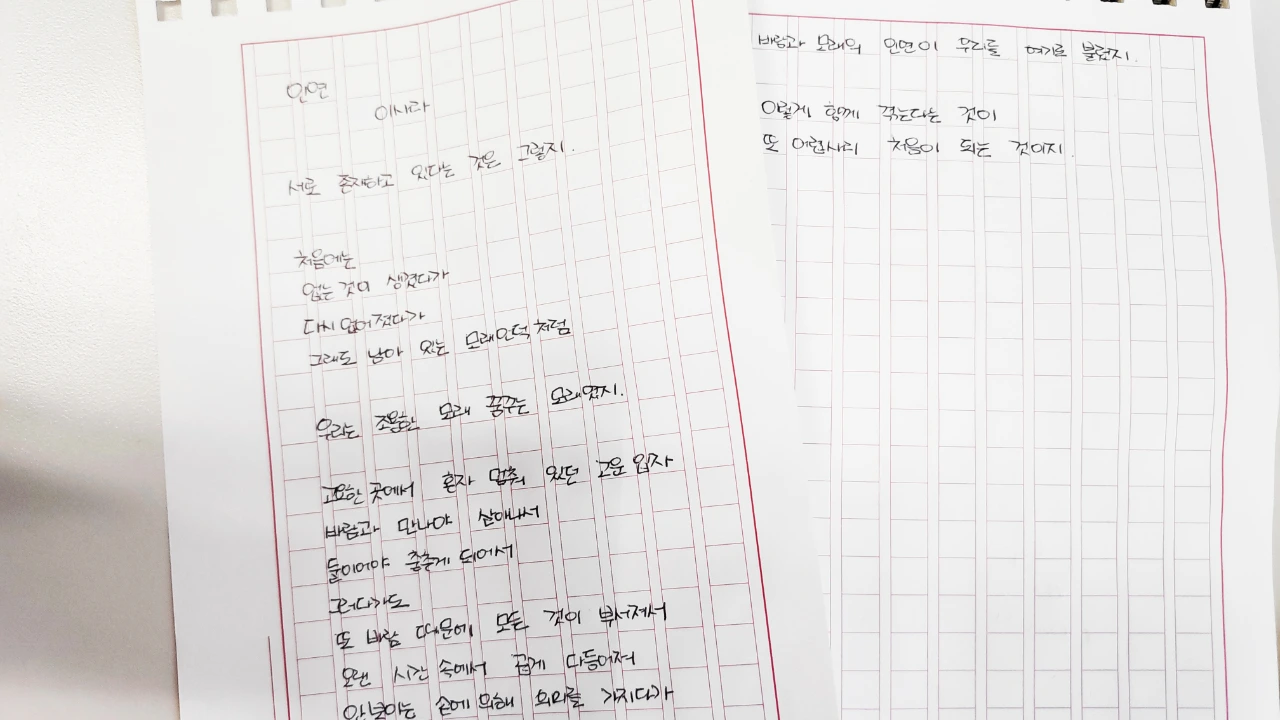 인연
이시라
서로 존재하고 있다는 것은 그렇지.
처음에는
없는 것이 생겼다가
다시 없어졌다가
그래도 남아 있는 모래언덕처럼
우리는 조용한 모래 꿈꾸는 모래였지.
고요한 곳에서 혼자 멈춰 있던 고운 입자
바람과 만나야 살아나서
둘이어야 춤추게 되어서
그러다가도
또 바람 때문에 모든 것이 부서져서
오랜 시간 속에서 곱게 다듬어져
손에 의해 의미를 가지다가
바람과 모래의 인연이 우리를 여기로 불렀지.
이렇게 함께 겪는다는 것이
또 어렵사리 처음이 되는 것이지.